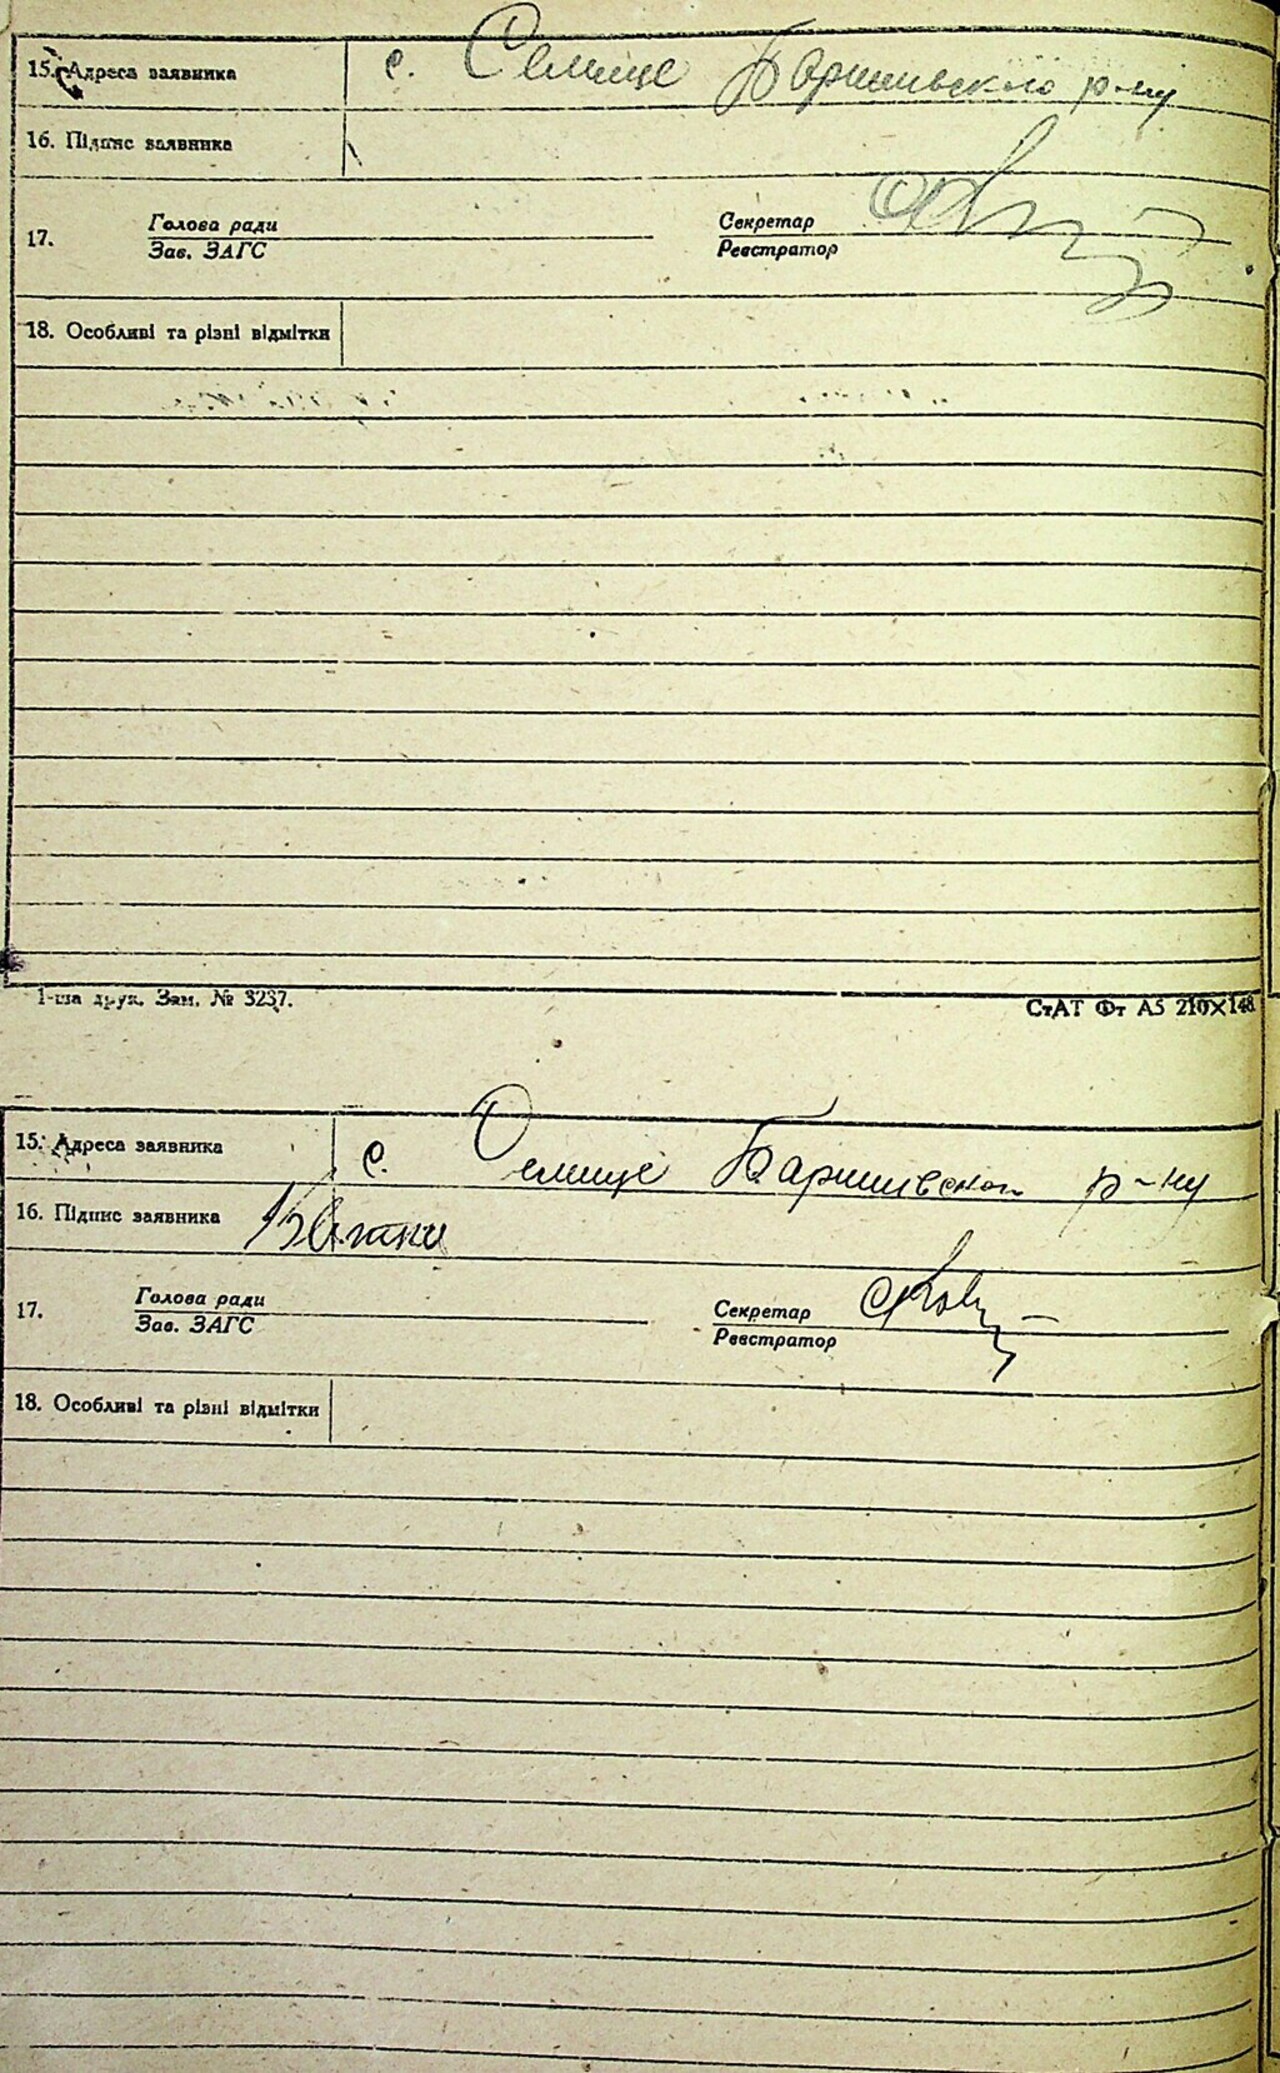 15. Адреса заявника с. Селище Баришивського р-ну
16. Підпис заявника
17. Голова ради Секретар
Зав. ЗАГС Реєстратор
18. Особливі та різні відмітки
1-ша друк. Зам. № 3237. СтАТ Фт А5 210×148
15. Адреса заявника с. Селище Баришивськог р-ну
16. Підпис заявника
17. Голова ради Секретар
Зав. ЗАГС Реєстратор
18. Особливі та різні відмітки